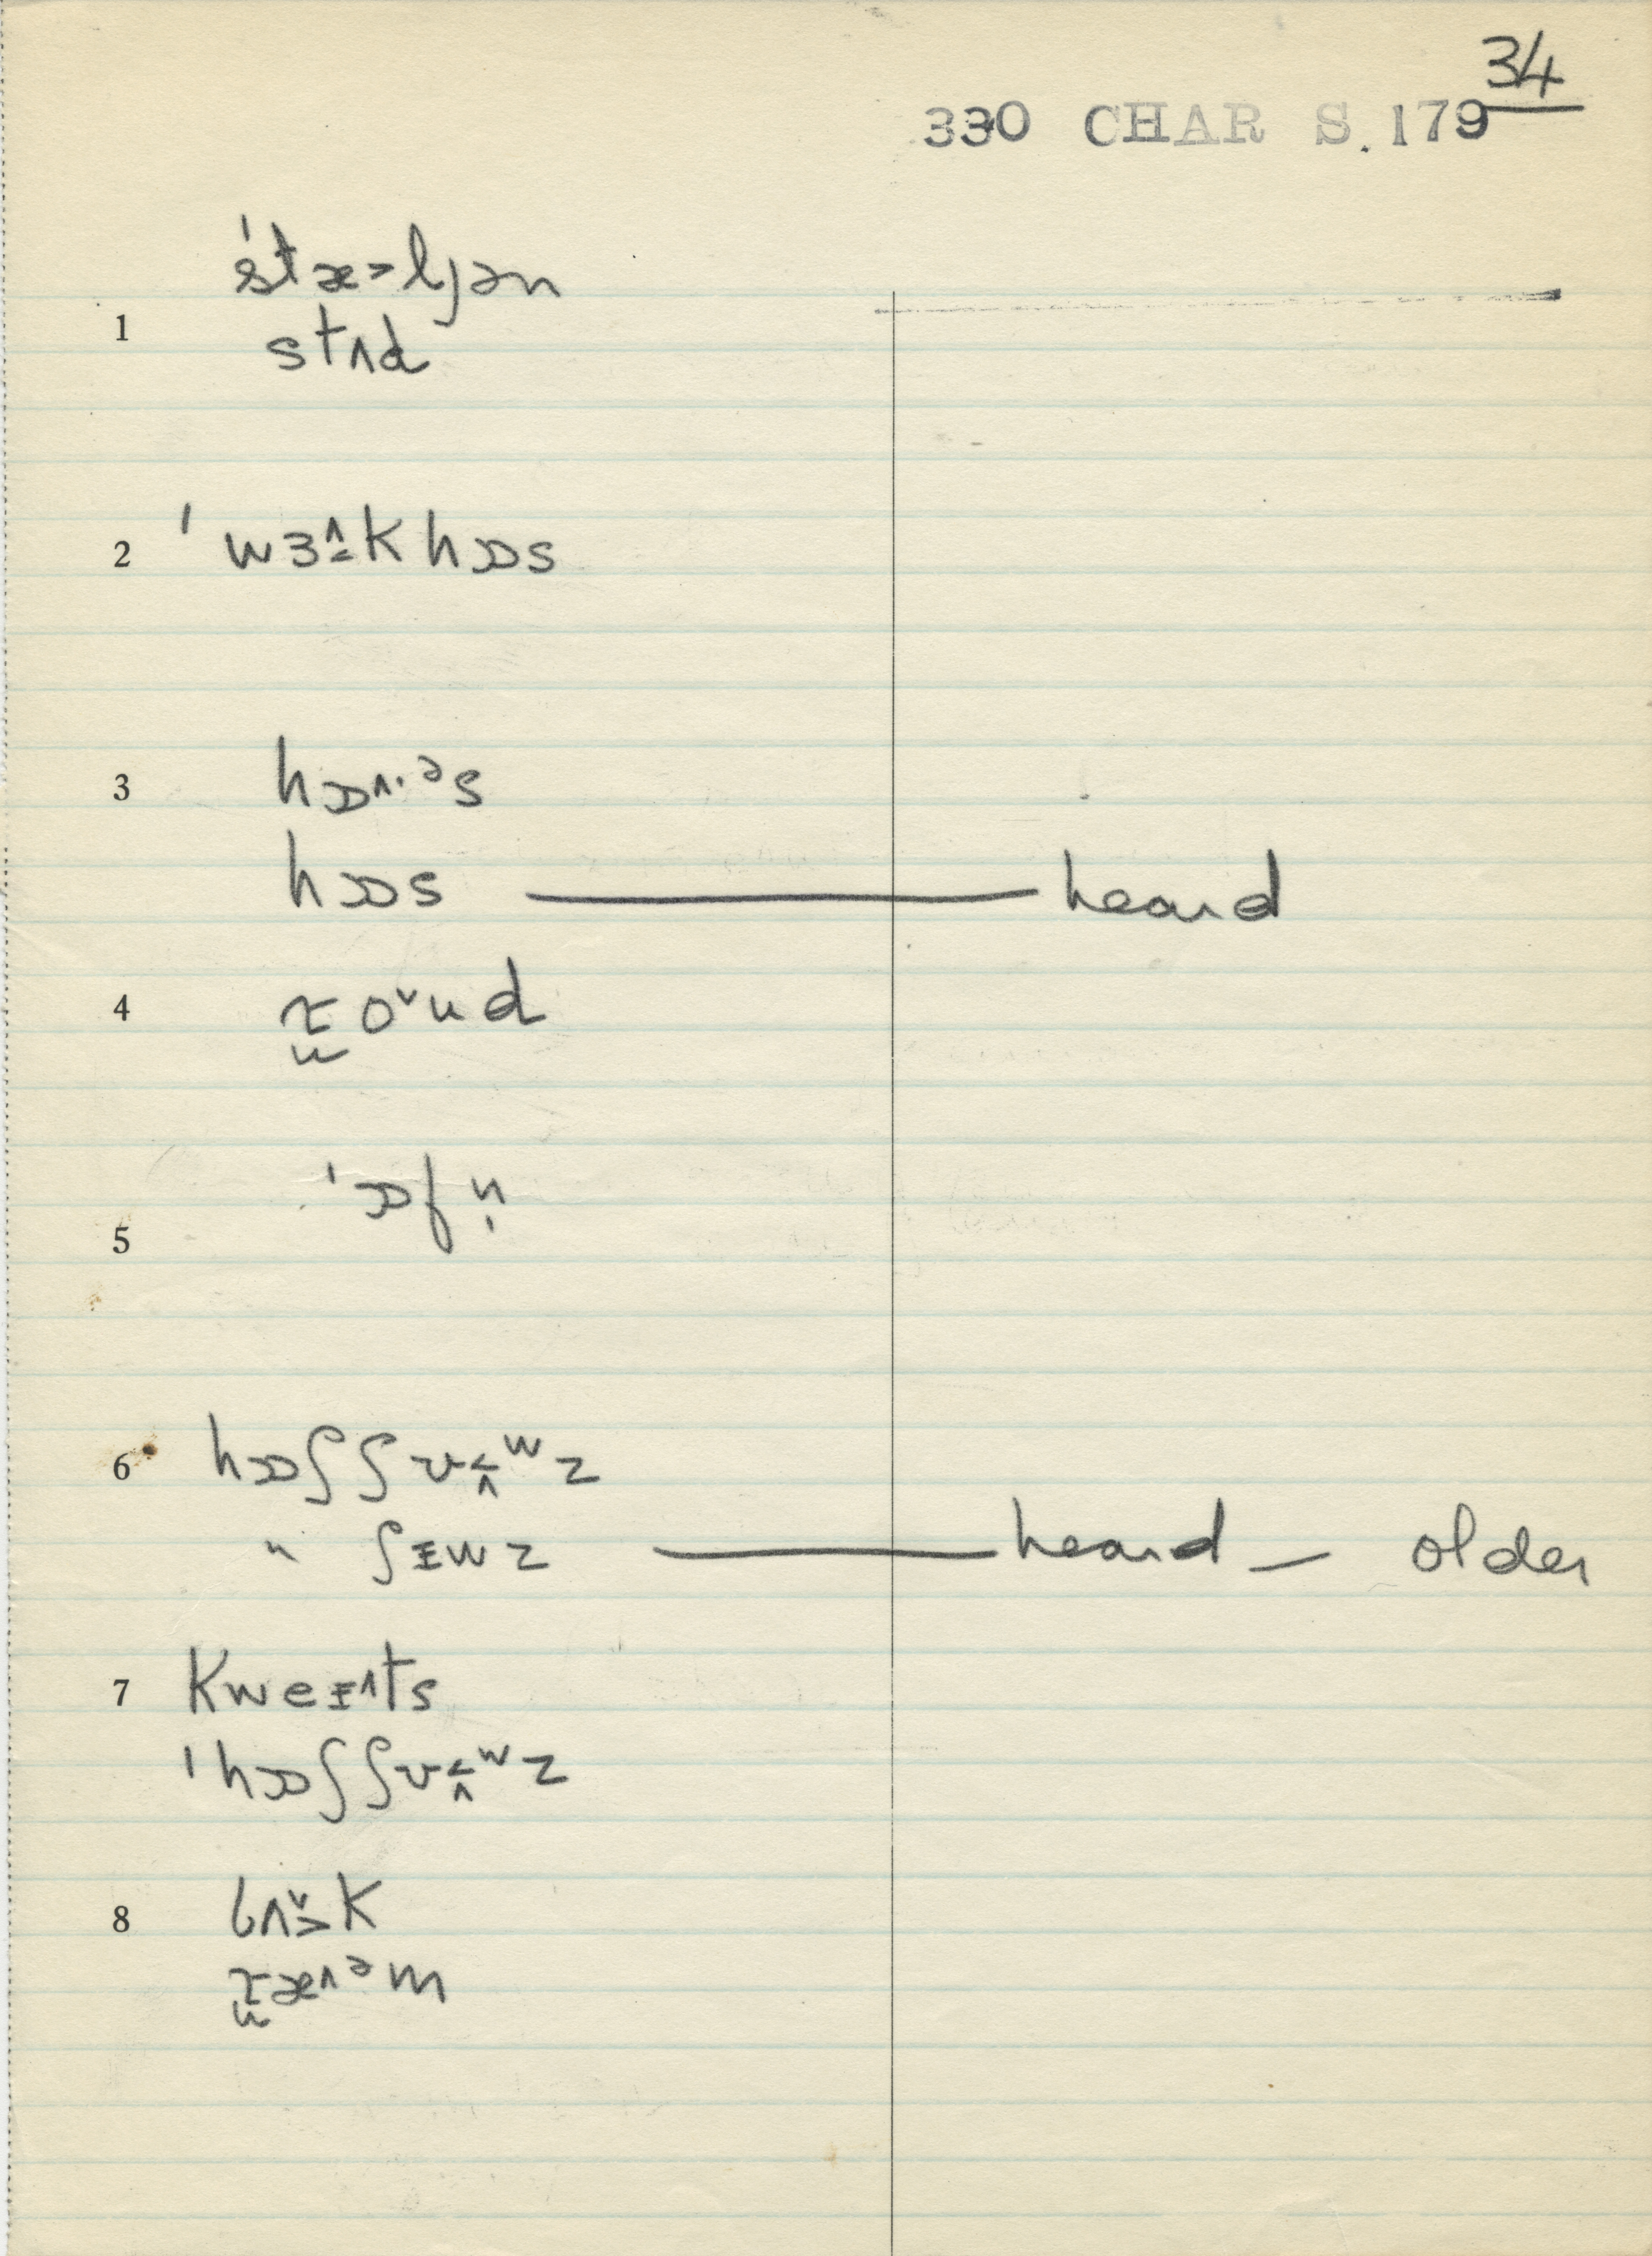 34
330 CHAR S. 179
1 ˈstæ˃ljən
stʌd
2 ˈwɜ^khɔɒs
3 hɔɒ^·ᵊs
hɔɒs — heard
4 ɽoˇud
5 ˈɔɒfn̩
6 hɔɒʃʃʊʷz
" ʃɪwz — heard — older
7 kweɪ^ts
ˈhɔɒʃʃʊʷz
8 bʌˇk
ɽæ^ᵊm